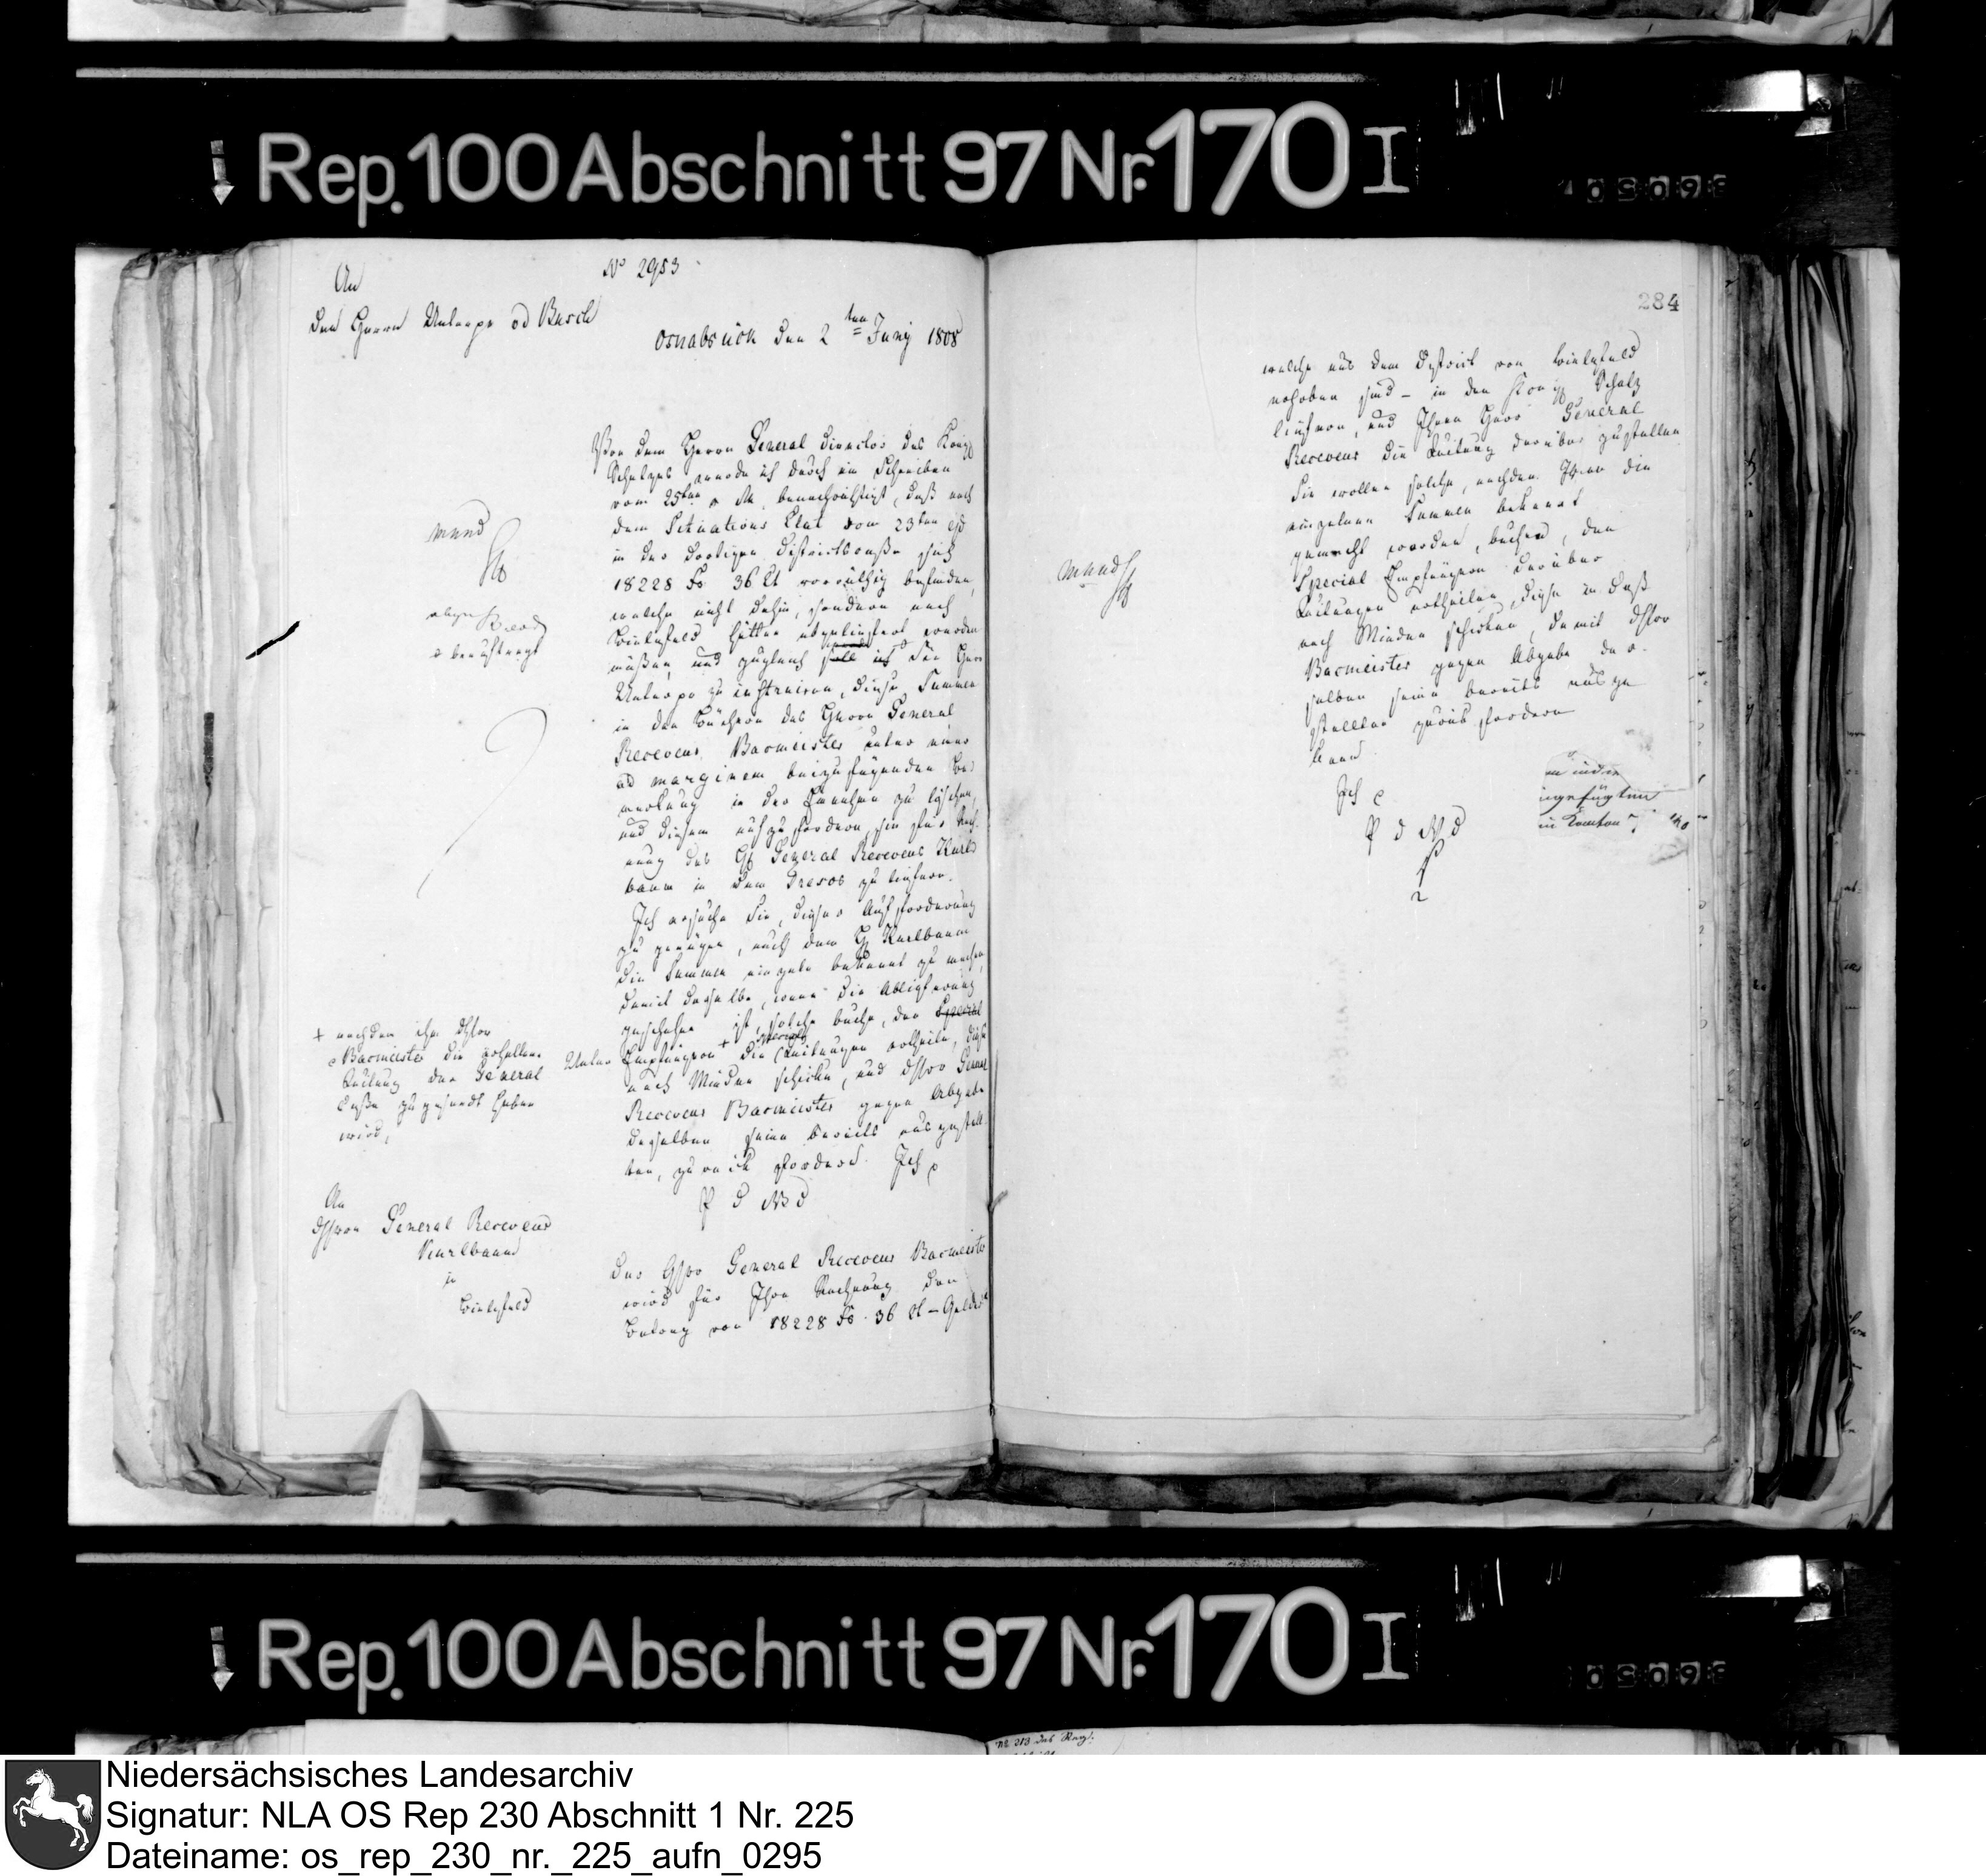 Rep. 100 Abschnitt 97 Nr. 170 I
An
den Herrn Unterpr vd Busch
No 2953
Osnabrück den 2ten Juny 1808
Von dem Herrn General Director des Königl
Schatzes wurde ich durch ein Schreiben
vom 25ten v M. benachrichtigt, daß nach
dem Situations Etat vom 23ten ejd
in der dortigen Districtscasse sich
18228 Fr 36 Ct vorräthig befinden,
welche nicht dahin, sondern nach
Bielefeld hätten abgeliefert werden
müßen, und zugleich die Herr
Unterpr zu instruiren, diese Summe
in den Büchern des Herrn General
Receveur Bacmeister unter einer
ad marginem beizufügenden Be
merkung in der Einnahme zu löschen,
und diesem aufzufordern, sie für Rech
nung des H General Receveur Kurl
baum in dem Tresor zu liefern.
Ich ersuche Sie, dieser Aufforderung
zu genügen, auch dem H Kurlbaum
die Summen einzeln bekannt zu machen,
damit derselbe, wenn die Ablieferung
geschehen ist, solche buche, den Special
Unter Empfängern + die Quitungen ertheile, diese
nach Minden schicke, und Herr General
Receveur Bacmeister gegen Abgabe
derselben seine bereits ausgestell
ten, zurück fordere. Ich
P d N d
mund
+ nachdem ihm Herr
Bacmeister die erhaltene
Quitung der General
Casse zugesandt haben
wird,
An
Herrn General Receveur
Kurlbaum
in
Bielefeld
Der Herr General Receveur Bacmeister
wird für Ihre Rechnung den
Betrag von 18228 Fr. 36 Ct – Gelder
284
welche aus dem District von Bielefeld
erhoben sind – in den Königl Schatz
liefern, und Ihnen Herr General
Receveur die Quitung darüber zustellen
Sie wollen solche, nachdem Ihnen die
einzelnen Summen bekannt
gemacht worden, buchen, den
Special Empfängern darüber
Quitungen ertheilen, diese an daß
nach Minden schicken, damit Herr
Bacmeister gegen Abgabe der
selben seine bereits ausge
stellten zurück fordern
kann.
Ich
P d N d
mund
Rep. 100 Abschnitt 97 Nr. 170 I
Niedersächsisches Landesarchiv
Signatur: NLA OS Rep 230 Abschnitt 1 Nr. 225
Dateiname: os_rep_230_nr._225_aufn_0295